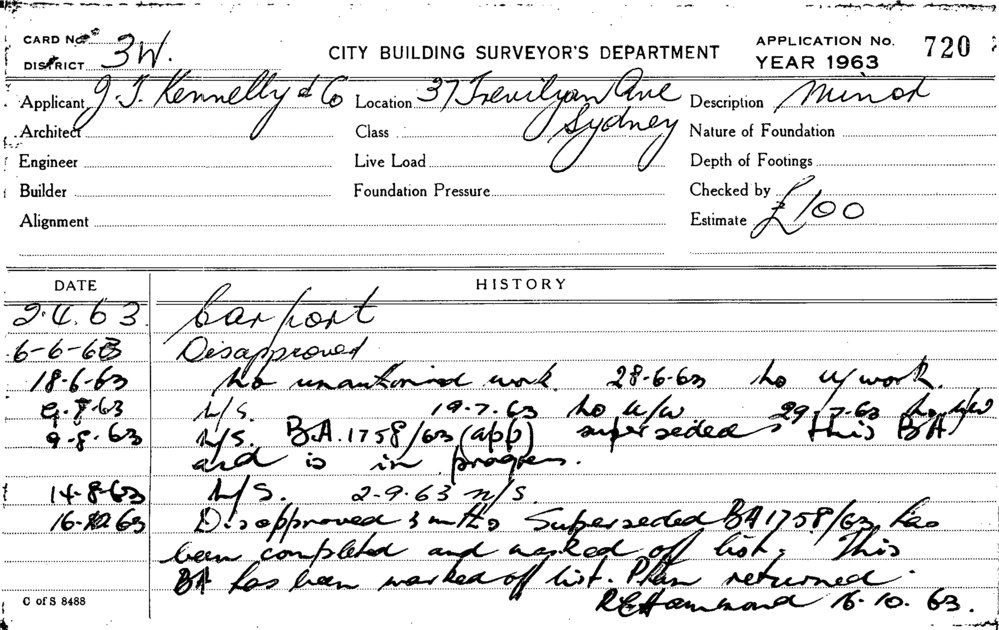 CARD No 3W.
DISTRICT
CITY BUILDING SURVEYOR'S DEPARTMENT
APPLICATION No. 720
YEAR 1963
Applicant J. T. Kennelly & Co Location 37 Trevilyan Ave Description Minor
Sydney
Architect Class Nature of Foundation
Engineer Live Load Depth of Footings
Builder Foundation Pressure Checked by
Alignment Estimate £100
DATE HISTORY
2.4.63. Carport
6-6-63 Disapproved
18-6-63 No unauthorised work. 28-6-63 No u/work.
9-7-63 N/S. 19.7.63 No u/w 29.7.63 No u/w
9-8-63 N/S. B.A. 1758/63 (app) supersedes this BA
and is in progress.
14-8-63 N/S. 2-9.63 n/s.
16-10 63 Disapproved 3 mths Superseded BA 1758/63 has
been completed and marked off list. This
BA has been marked off list. Plan returned.
REHammond 16.10.63.
C of S 8488